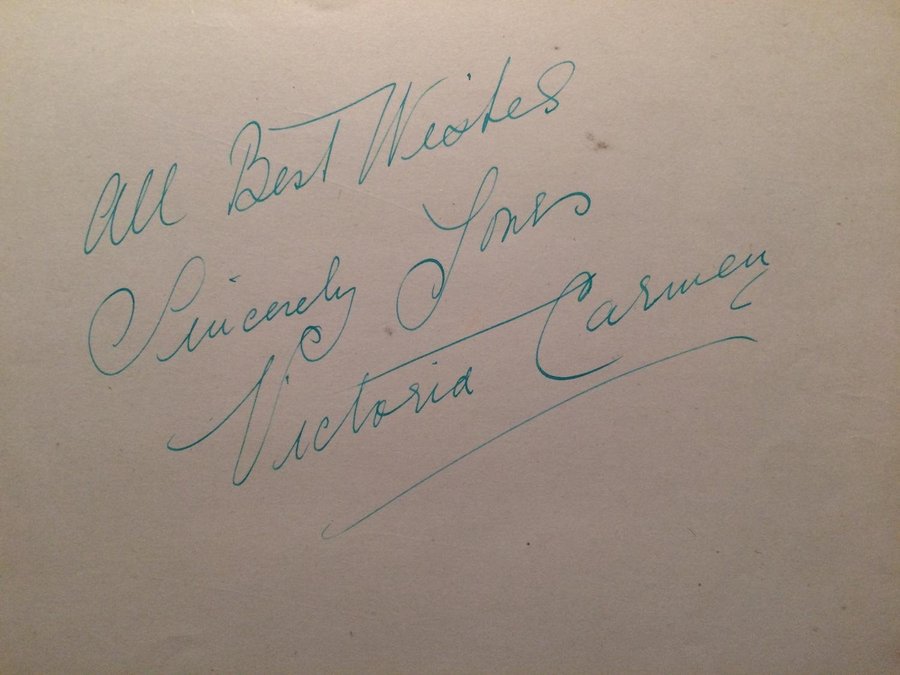 All Best Wishes
Sincerely Yours
Victoria Carmen